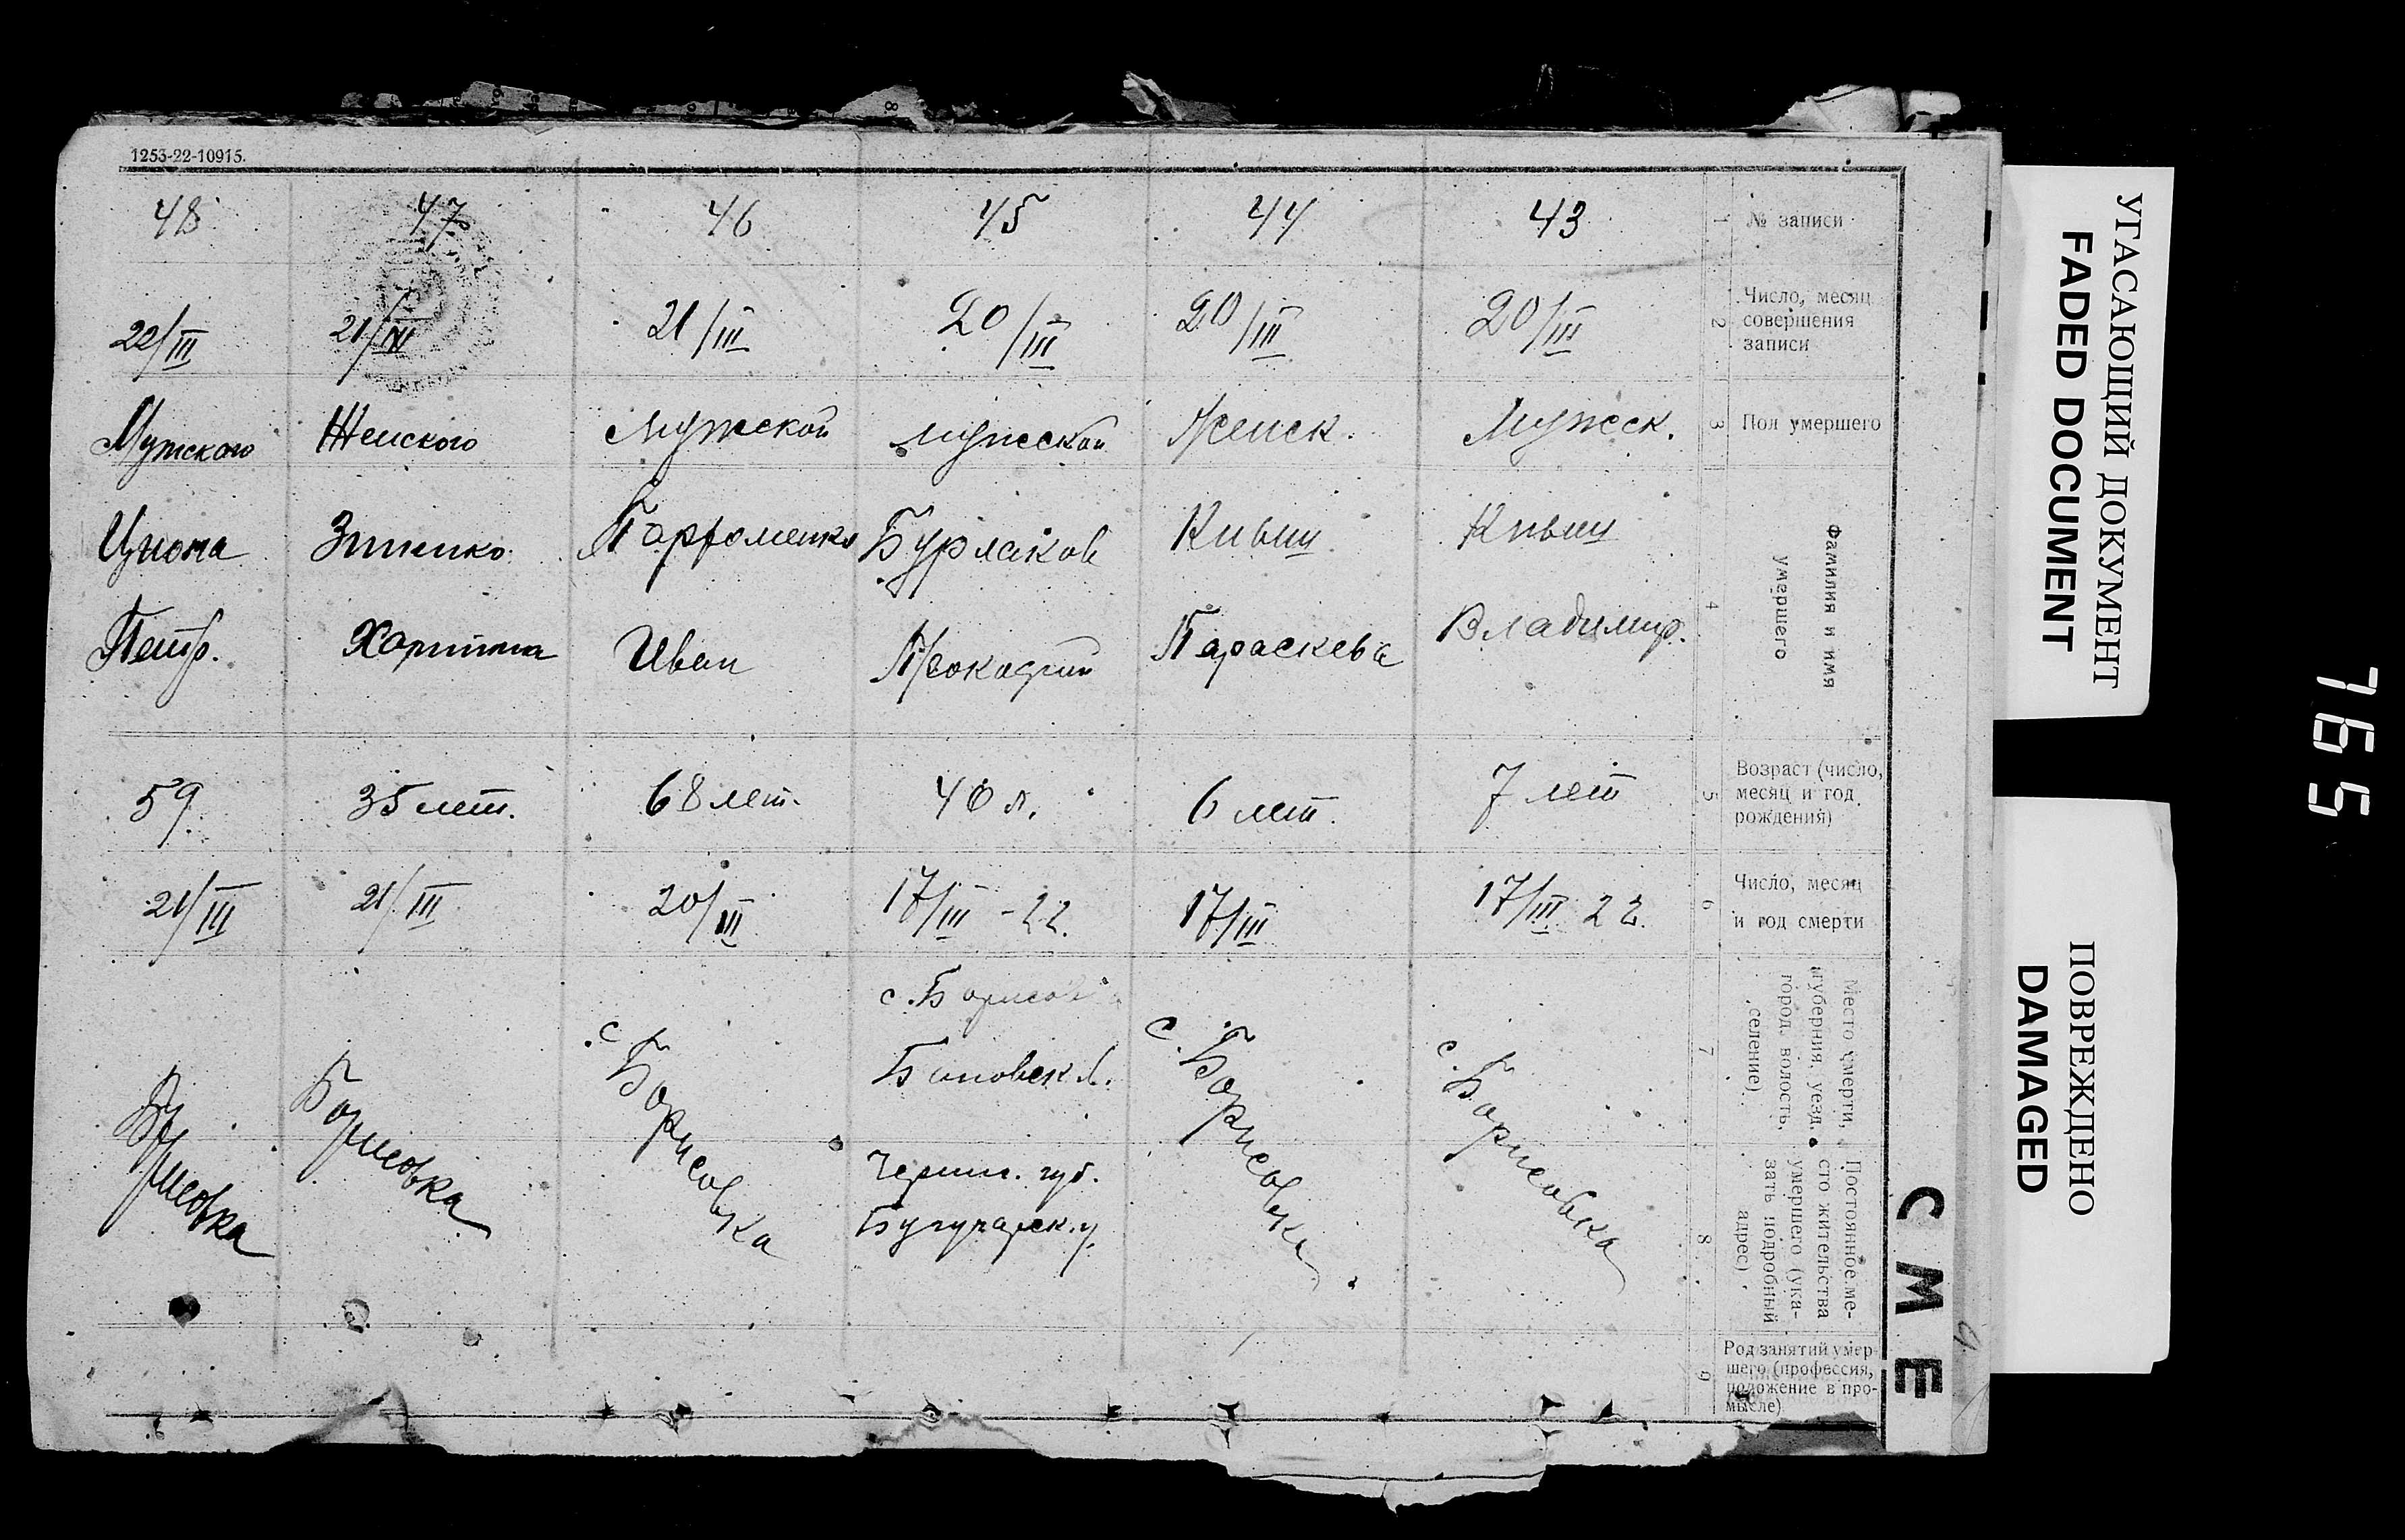 1253-22-10915.
№ записи
1
43
44
45
46
47
48
Число, месяц
совершения
записи
2
20/III
20/III
20/III
21/III
21/III
22/III
Пол умершего
3
Мужск.
Женск.
мужской
Мужской
Женского
Мужского
Фамилия и имя
умершего
4
Кивш
Владимир.
Кивш
Параскева
Бурлаков
Иван
Зиненко
Петр.
Возраст (число,
месяц и год
рождения)
5
7 лет
6 лет.
40 л.
68 лет.
35 лет.
59.
Число, месяц
и год смерти
6
17/III 22.
17/III
17/III - 22.
20/III
21/III
21/III
Место смерти,
(губерния, уезд,
город, волость,
селение)
7
с. Борисовка
с. Борисовка
с. Борисовка
с. Борисовка
Борисовка
Борисовка
Постоянное ме-
сто жительства
умершего (ука-
зать подробный
адрес)
8
губ.
Род занятий умер-
шего (профессия,
положение в про-
мысле)
9
СМЕ
УГАСАЮЩИЙ ДОКУМЕНТ
FADED DOCUMENT
ПОВРЕЖДЕНО
DAMAGED
765